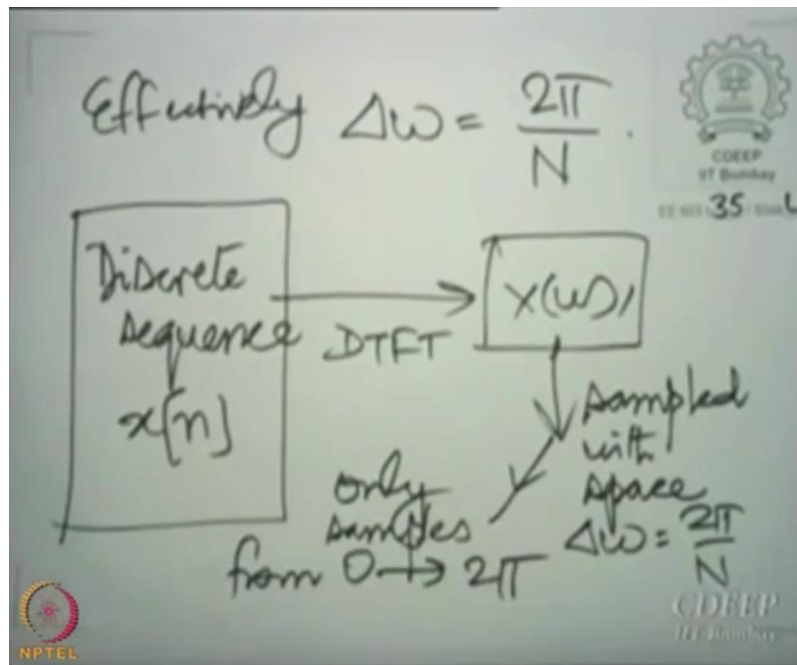 Effectively Δω = 2π / N .
CDEEP
IIT Bombay
35
Discrete
sequence
x[n]
DTFT
X(ω)
sampled
with
space
Δω = 2π / N
only
samples
from 0 → 2π
CDEEP
IIT Bombay
NPTEL